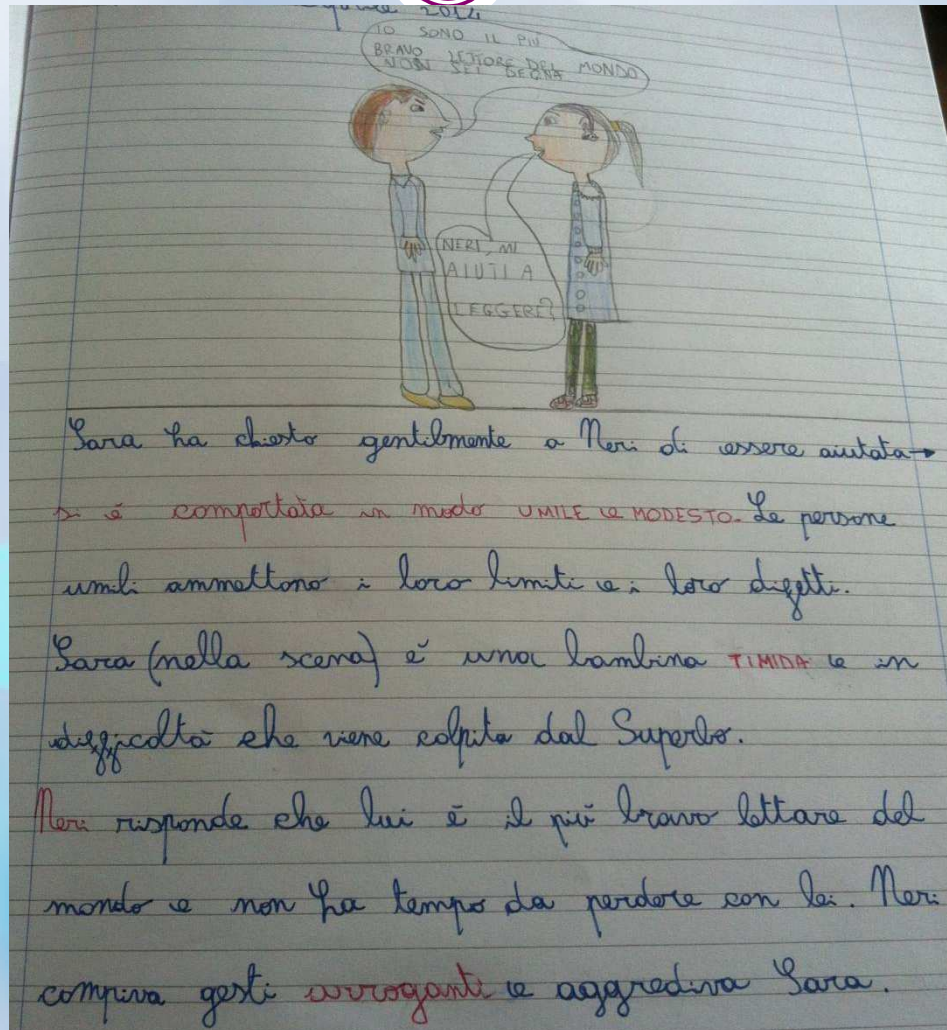 2014
IO SONO IL PIÙ
BRAVO LETTORE DEL MONDO
NON SEI DEGNA
NERI, MI
AIUTI A
LEGGERE?
Sara ha chiesto gentilmente a Neri di essere aiutata →
si è comportata in modo UMILE e MODESTO. Le persone
umili ammettono i loro limiti e i loro difetti.
Sara (nella scena) è una bambina TIMIDA e in
difficoltà che viene colpita dal Superbo.
Neri risponde che lui è il più bravo lettore del
mondo e non ha tempo da perdere con lei. Neri
compiva gesti arroganti e aggrediva Sara.